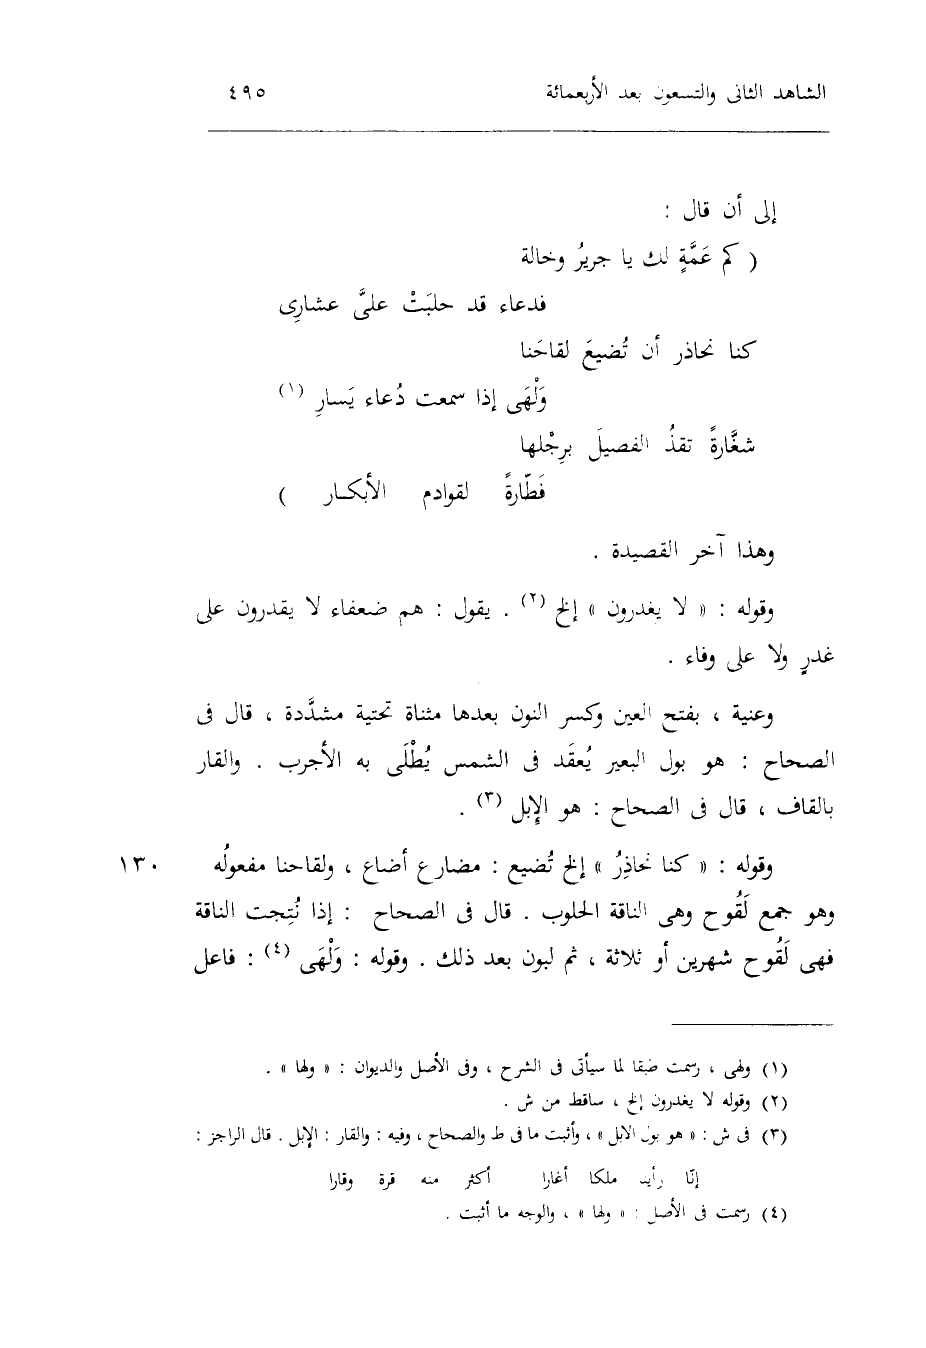 الشاهد الثانى والتسعون بعد الأربعمائة ٤٩٥
إلى أن قال :
( كم عَمَّةٍ لك يا جريرُ وخالة
فدعاء قد حلبَتْ علىَّ عشارِى
كنا نحاذر أن تُضيعَ لقاحَنا
وَلْهَى إذا سمعت دُعاء يَسارِ (١)
شغَّارةً تقذُ الفصيلَ برِجْلها
فَطّارةً لقوادم الأبكار )
وهذا آخر القصيدة .
وقوله : « لا يغدرون » إلخ (٢) . يقول : هم ضعفاء لا يقدرون على
غدرٍ ولا على وفاء .
وعنية ، بفتح العين وكسر النون بعدها مثناة تحتية مشدَّدة ، قال فى
الصحاح : هو بول البعير يُعقَد فى الشمس يُطْلَى به الأجرب . والقار
بالقاف ، قال فى الصحاح : هو الإبل (٣) .
وقوله : « كنا نحاذِرُ » إلخ تُضيع : مضارع أضاع ، ولقاحنا مفعولُه ١٣٠
وهو جمع لَقُوح وهى الناقة الحلوب . قال فى الصحاح : إذا نُتِجت الناقة
فهى لَقُوح شهرين أو ثلاثة ، ثم لبون بعد ذلك . وقوله : وَلْهَى (٤) : فاعل
(١) ولهى ، رسمت طبقا لما سيأتى فى الشرح ، وفى الأصل والديوان : « ولها » .
(٢) وقوله لا يغدرون إلخ ، ساقط من ش .
(٣) فى ش : « هو بول الابل » ، وأثبت ما فى ط والصحاح ، وفيه : والقار : الإبل . قال الراجز :
إنّا رأينا ملكا أغارا أكثر منه قرة وقارا
(٤) رسمت فى الأصل : « ولها » ، والوجه ما أثبت .